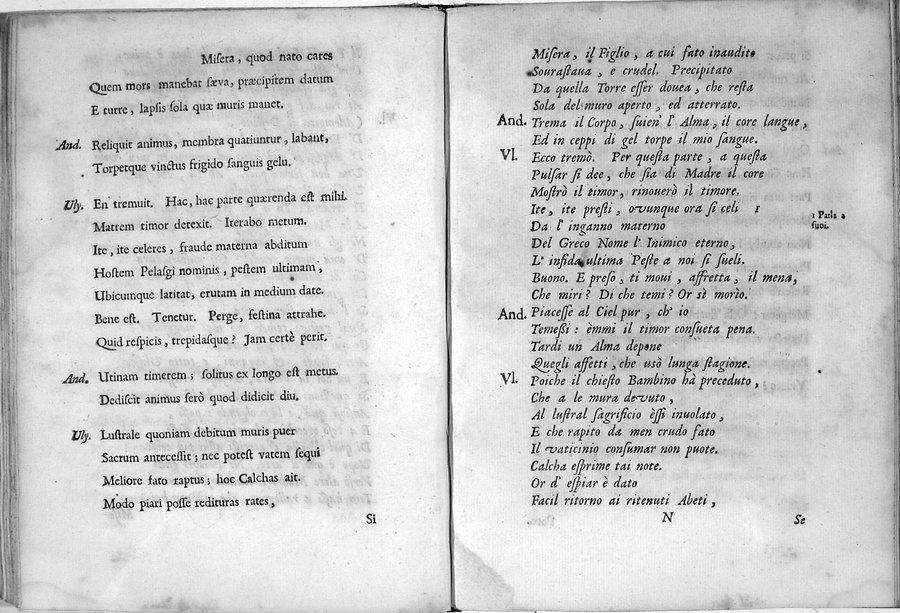 Misera, quod nato cares
Quem mors manebat sæva, præcipitem datum
E turre, lapsis sola quæ muris manet.
And. Reliquit animus, membra quatiuntur, labant,
Torpetque vinctus frigido sanguis gelu.
Uly. En tremuit. Hac, hac parte quærenda est mihi.
Matrem timor detexit. Iterabo metum.
Ite, ite celeres, fraude materna abditum
Hostem Pelasgi nominis, pestem ultimam,
Ubicumque latitat, erutam in medium date.
Bene est. Tenetur. Perge, festina attrahe.
Quid respicis, trepidasque? Jam certè perit.
And. Utinam timerem; solitus ex longo est metus.
Dediscit animus serò quod didicit diu.
Uly. Lustrale quoniam debitum muris puer
Sacrum antecessit; nec potest vatem sequi
Meliore fato raptus; hoc Calchas ait.
Modo piari posse redituras rates,
Si
Misera, il Figlio, a cui fato inaudito
Sourastaua, e crudel. Precipitato
Da quella Torre esser douea, che resta
Sola del muro aperto, ed atterrato.
And. Trema il Corpo, suien' l' Alma, il core langue,
Ed in ceppi di gel torpe il mio sangue.
Vl. Ecco tremò. Per questa parte, a questa
Pulsar si dee, che sia di Madre il core
Mostrò il timor, rinouerò il timore.
Ite, ite presti, ovunque ora si celi 1
1 Parla a
suoi.
Da l' inganno materno
Del Greco Nome l' Inimico eterno,
L' infida ultima Peste a noi si sueli.
Buono. E preso, ti moui, affretta, il mena,
Che miri? Di che temi? Or sè morìo.
And. Piacesse al Ciel pur, ch' io
Temessi: èmmi il timor consueta pena.
Tardi un Alma depone
Quegli affetti, che usò lunga stagione.
Vl. Poiche il chiesto Bambino hà preceduto,
Che a le mura devuto,
Al lustral sagrificio èssi inuolato,
E che rapito da men crudo fato
Il vaticinio consumar non puote.
Calcha esprime tai note.
Or d' espiar è dato
Facil ritorno ai ritenuti Abeti,
N
Se